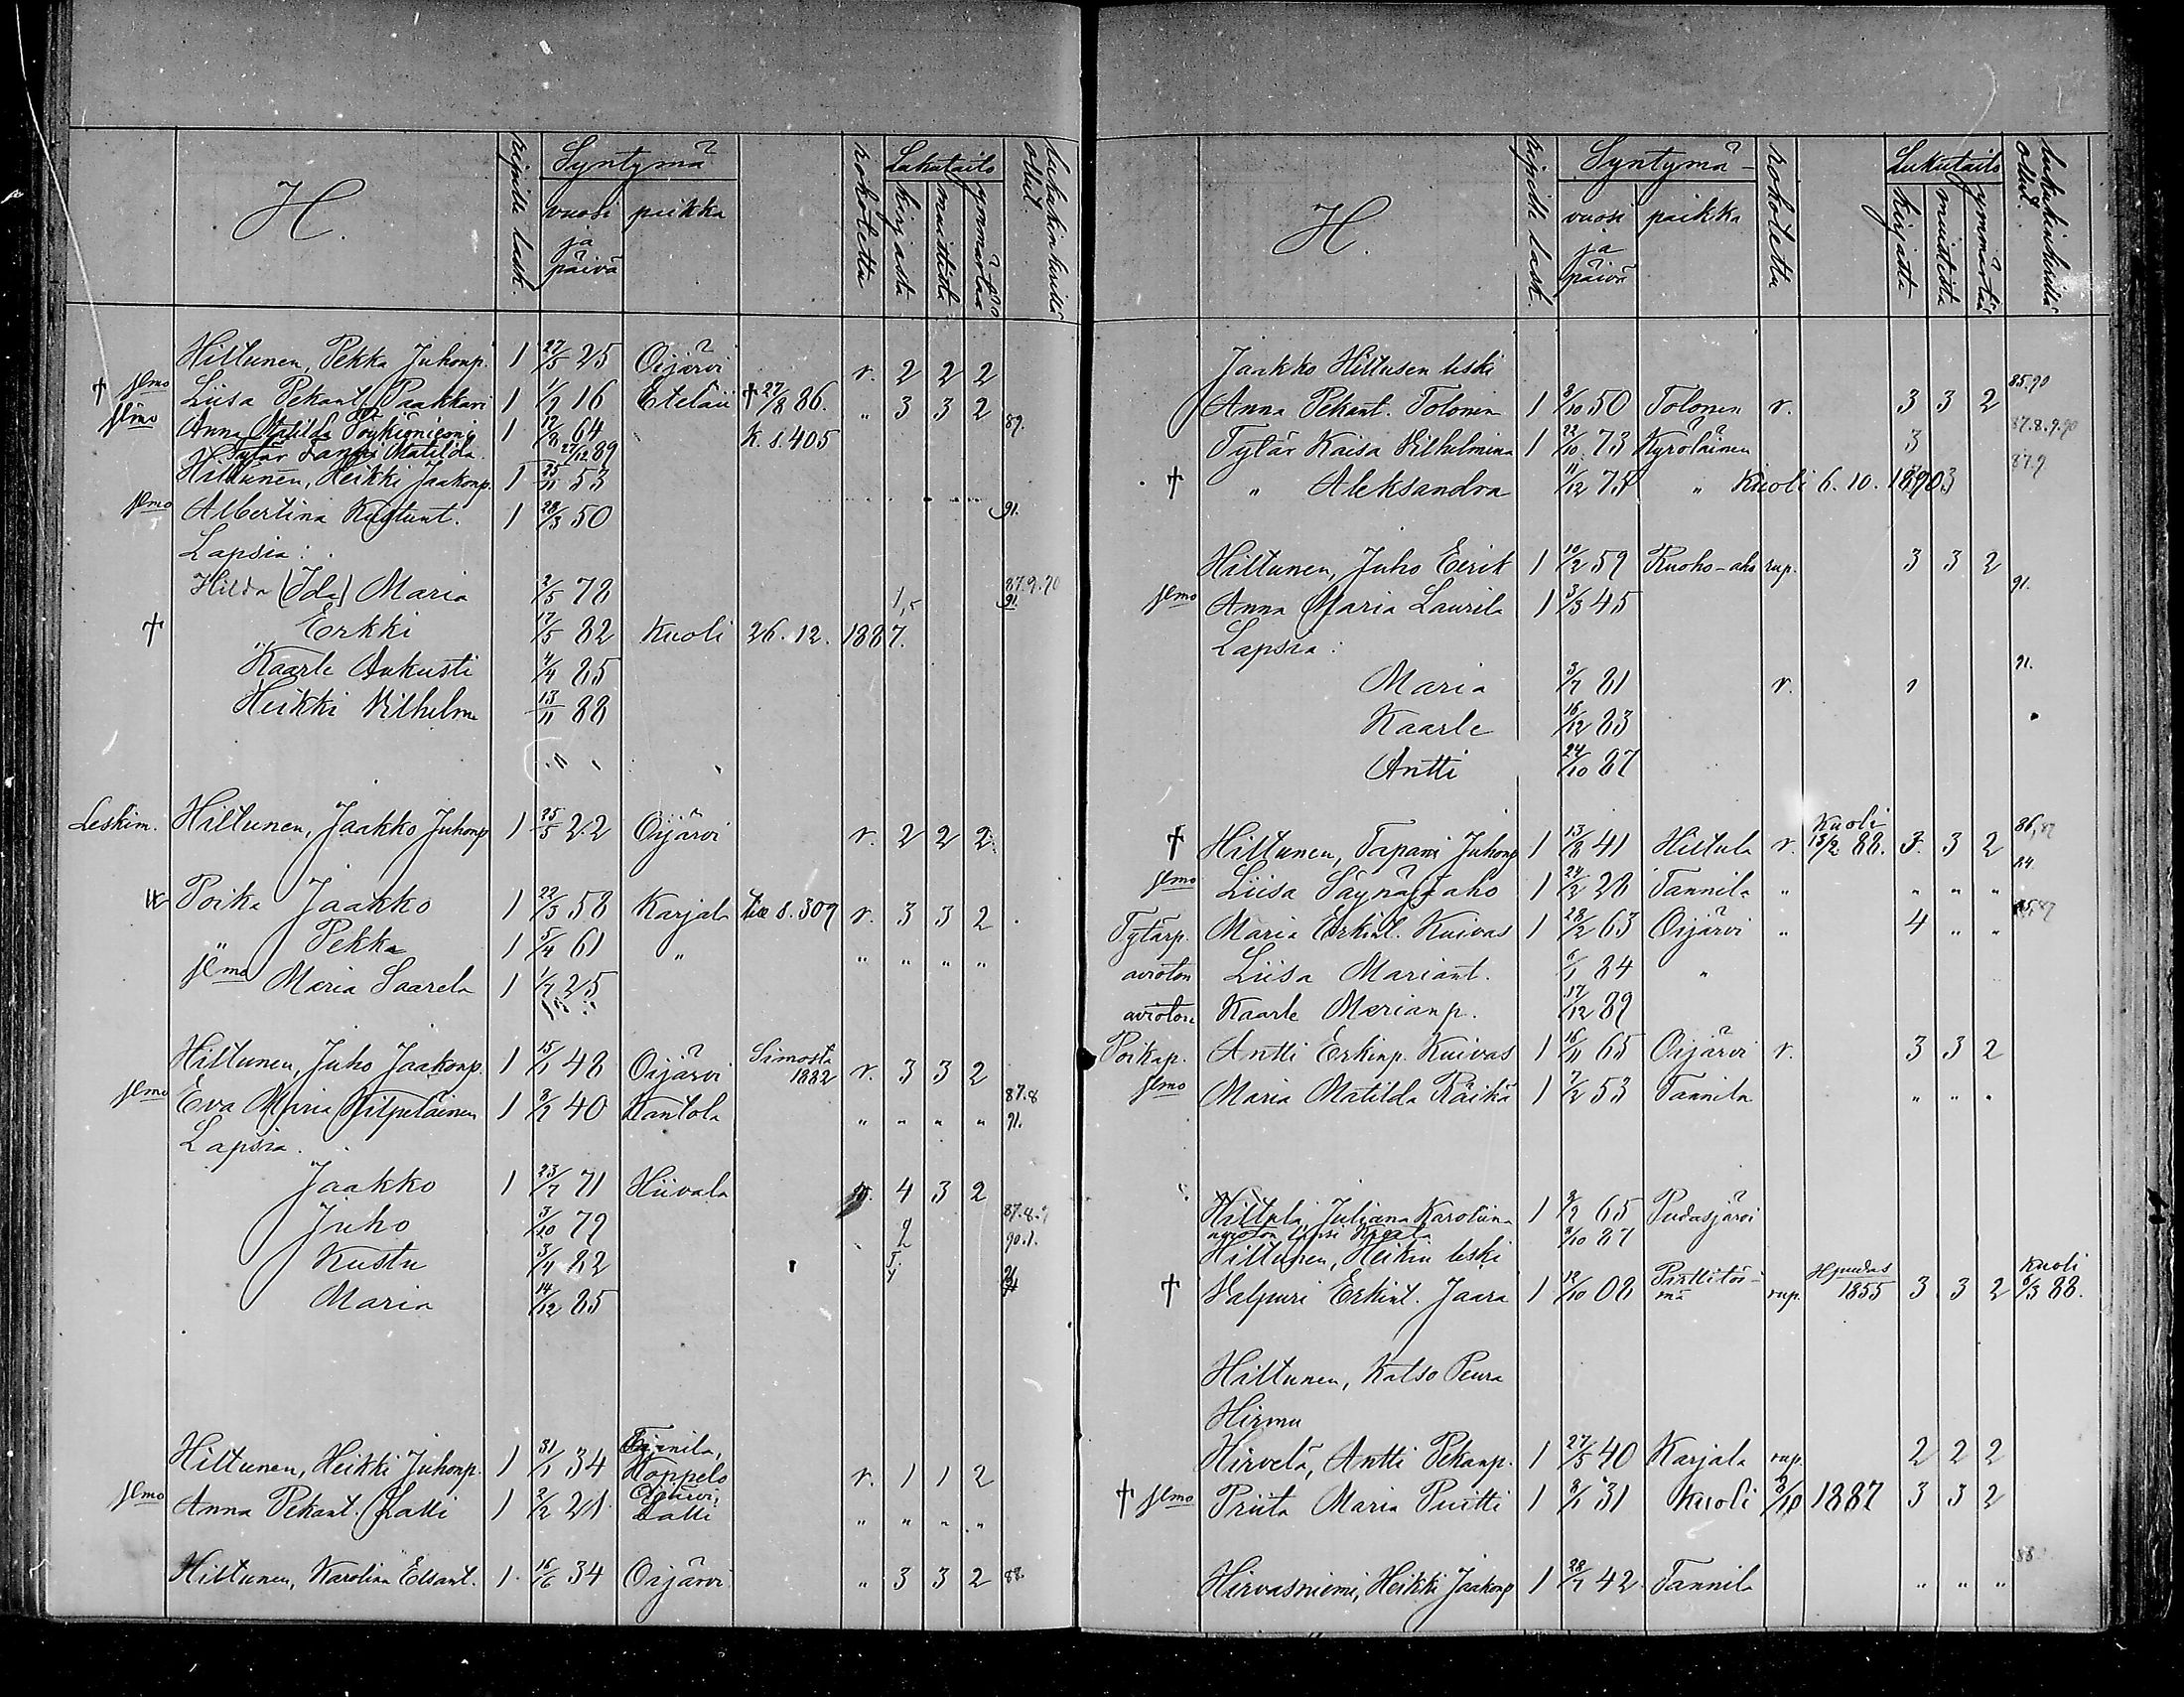 H.
ripille lask.
Syntymä
vuosi ja päivä
paikka
rokotettu
Lukutaito
kirjasta
muistista
ymmärtää
lukukinkerillä ollut.
Hiltunen, Pekka Juhonp. 1 27/5 25 Oijärvi r. 2 2 2
† vmo Liisa Pekant. Paakkari 1 1/9 16 Eteläii † 27/8 86. " 3 3 2
vmo Anna Matilda 1 12/8 64 K. s. 405 89.
Tytär Matilda 27/12 89
Hiltunen, Heikki Jaakonp. 1 25/11 53
vmo Albertina Kustunt. 1 28/3 50 91.
Lapsia:
Hilda (Ida) Maria 2/5 78 1,5 87.9.90 91.
† Erkki 17/5 82 Kuoli 26.12. 1887.
Kaarle Aukusti 4/4 85
Heikki Vilhelm 13/11 88
Leskim. Hiltunen, Jaakko Juhonp 1 25/5 22 Oijärvi r. 2 2 2.
Poika Jaakko 1 22/3 58 Karjala s. 309 r. 3 3 2
" Pekka 1 5/4 61 " " " " "
vmo Maria Saarela 1 1/7 25
Hiltunen, Juho Jaakonp. 1 15/1 48 Oijärvi Simosta 1882 r. 3 3 2
vmo Eva Maria Hilpeläinen 1 8/2 40 Kantola " " " " 87.8 91.
Lapsia.
Jaakko 1 23/7 71 Hiivala 4 3 2
Juho 3/10 79 2 87.8.9 90.1.
Kustu 3/4 82 5. 4
Maria 14/12 85
Hiltunen, Heikki Juhonp. 1 31/1 34 Tannila, Koppelo r. 1 1 2
vmo Anna Pekant. Latti 1 2/2 21 Oijärvi, Latti " " " "
Hiltunen, Karolina Elsant. 1. 16/6 34 Oijärvi " 3 3 2 88.
H.
ripille lask.
Syntymä-
vuosi ja päivä
paikka
rokotettu
Lukutaito
kirjasta
muistista
ymmärtää
lukukinkerillä ollut.
Jaakko Hiltusen leski
Anna Pekant. Tolonen 1 3/10 50 Tolonen r. 3 3 2 85.90
Tytär Kaisa Vilhelmina 1 22/10 73 Kyröläinen 3 87.8.9.90
† " Aleksandra 11/12 75 " Kuoli 6.10. 1890 3 87.9
Hiltunen, Juho Eerik 1 10/2 59 Ruoho-aho rup. 3 3 2
vmo Anna Maria Laurila 1 3/3 45 91.
Lapsia:
Maria 3/7 81 r. 1 91.
Kaarle 16/12 83
Antti 24/10 87
† Hiltunen, Tapani Juhonp 1 13/8 41 Hiltula r. Kuoli 13/2 88. 3. 3 2 86,87
vmo Liisa Säynäjäaho 1 24/2 28 Tannila " " " " 84.
Tytärp. Maria Erkint. Kuivas 1 28/2 63 Oijärvi " 4 " "
avioton Liisa Mariant. 6/1 84 "
avioton Kaarle Marianp. 17/12 89
Poikap. Antti Erkinp. Kuivas 1 16/11 65 Oijärvi r. 3 3 2
vmo Maria Matilda Räikä 1 7/2 53 Tannila " " "
Hiltula, Juliana Karoliina 1 2/2 65 Pudasjärvi
avioton lapsi 3/10 87
Hiltunen, Heikin leski
† Valpuri Erkint. Jaara 1 12/10 08 Pirttitörmä rup. Hjuudas 1855 3 3 2 Kuoli 6/3 88.
Hiltunen, Katso Peura
Hirmu
Hirvelä, Antti Pekanp. 1 27/5 40 Karjala rup. 2 2 2
† vmo Priita Maria Puitti 1 8/1 31 Kuoli 3/10 1887 3 3 2
Hirvasniemi, Heikki Jaakonp 1 28/7 42 Tannila " " " 88